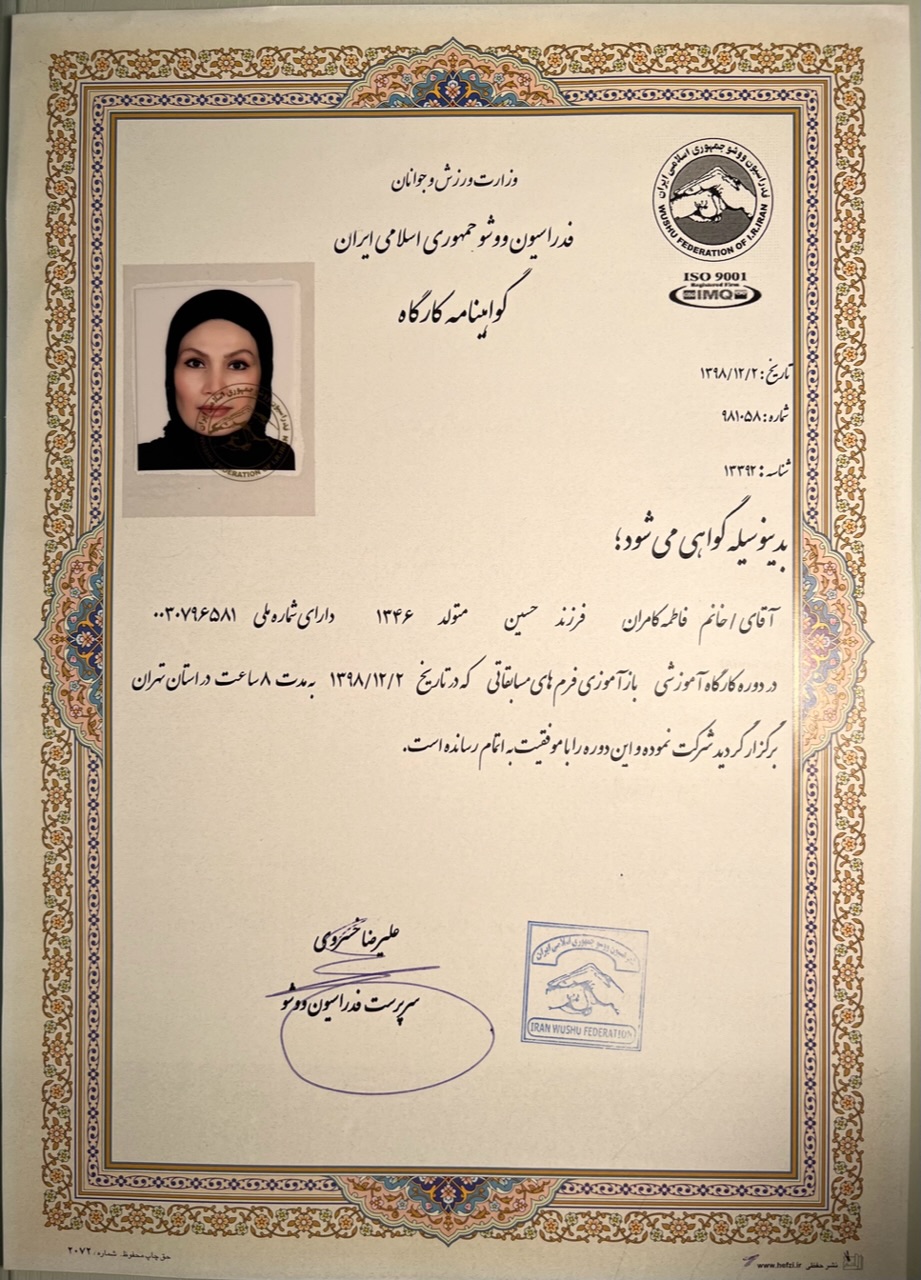 وزارت ورزش و جوانان
فدراسیون ووشو جمهوری اسلامی ایران
گواهینامه کارگاه
فدراسیون ووشو جمهوری اسلامی ایران
WUSHU FEDERATION OF I.R.IRAN
ISO 9001
Registered Firm
IMQ
تاریخ: ۱۳۹۸/۱۲/۲
شماره: ۹۸۱۰۵۸
شناسه: ۱۳۳۹۲
بدینوسیله گواهی می شود؛
آقای / خانم فاطمه کامران فرزند حسین متولد ۱۳۴۶ دارای شماره ملی ۰۰۳۰۷۹۶۵۸۱
در دوره کارگاه آموزشی بازآموزی فرم های مسابقاتی که در تاریخ ۱۳۹۸/۱۲/۲ به مدت ۸ ساعت در استان تهران
برگزار گردید شرکت نموده و این دوره را با موفقیت به اتمام رسانده است.
علیرضا خسروی
سرپرست فدراسیون ووشو
فدراسیون ووشو جمهوری اسلامی ایران
IRAN WUSHU FEDERATION
حق چاپ محفوظ. شماره: ۲۰۷۲
نشر حفظی www.hefzi.ir